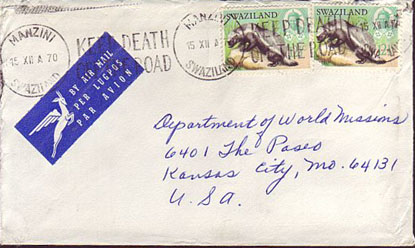 MANZINI
15 XII A 70
SWAZILAND
KEEP DEATH
ROAD
MANZINI
15 XII A
SWAZILAND
SWAZILAND
KEEP DEATH
THE ROAD
SWAZILAND
15 XII A 70
BY AIR MAIL
PER LUGPOS
PAR AVION
Department of World Missions
6401 The Paseo
Kansas City, Mo. 64131
U.S.A.